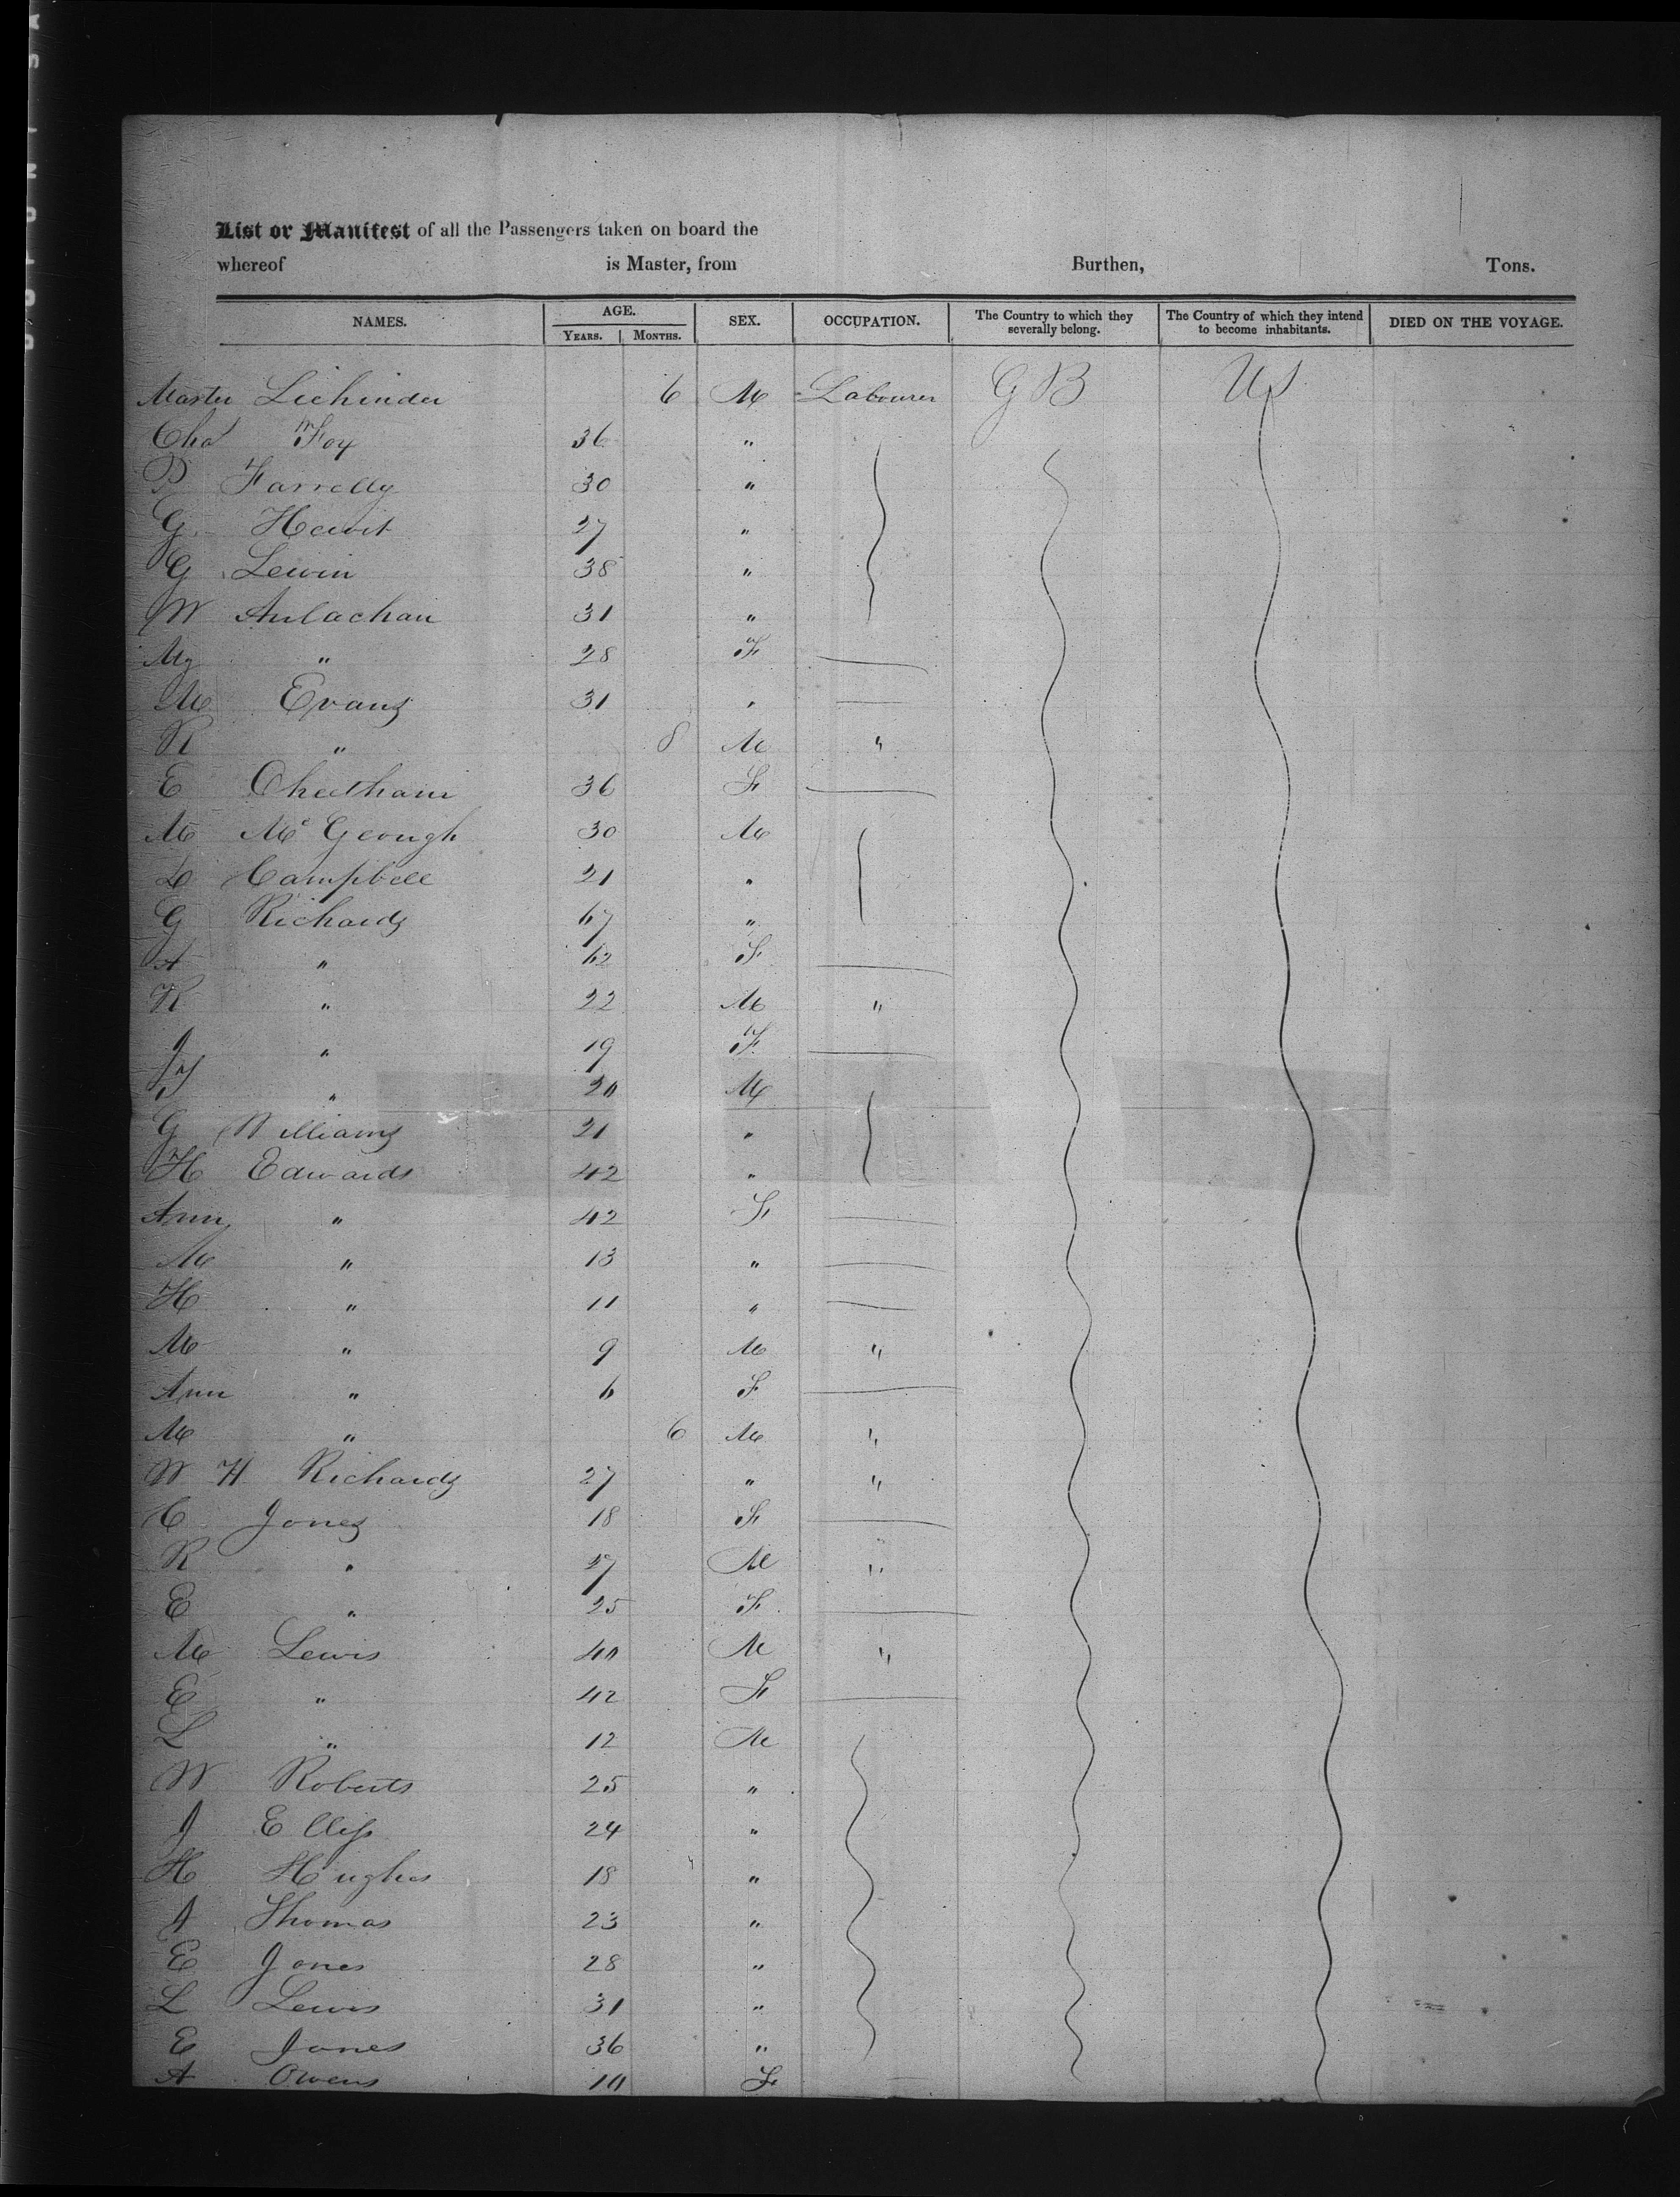 List or Manifest of all the Passengers taken on board the
whereof is Master, from Burthen, Tons.
NAMES. AGE. YEARS. MONTHS. SEX. OCCUPATION. The Country to which they severally belong. The Country of which they intend to become inhabitants. DIED ON THE VOYAGE.
Master Lichinder 6 M Labourer GB US
Chas Foy 36 "
P Farrelly 30 "
G Hewit 27 "
G Lewin 38 "
W Anlachan 31 "
Mg " 28 F
M Evans 31 "
R " 8 M "
E Cheetham 36 F
M McGeough 30 M
D Campbell 21 "
G Richards 67 "
A " 62 F
R " 22 M "
J " 19 F
T " 20 M
G Williams 21 "
H Edwards 42 "
Ann " 42 F
M " 13 "
H " 11 "
M " 9 M "
Ann " 6 F
M " 6 M "
W H Richards 27 " "
C Jones 18 F
R " 27 M "
E " 25 F
M Lewis 40 M "
E " 42 F
L " 12 M
W Roberts 25 "
J Elliss 24 "
H Hughes 18 "
A Thomas 23 "
E Jones 28 "
L Lewis 31 "
E Jones 36 "
A Owens 10 F